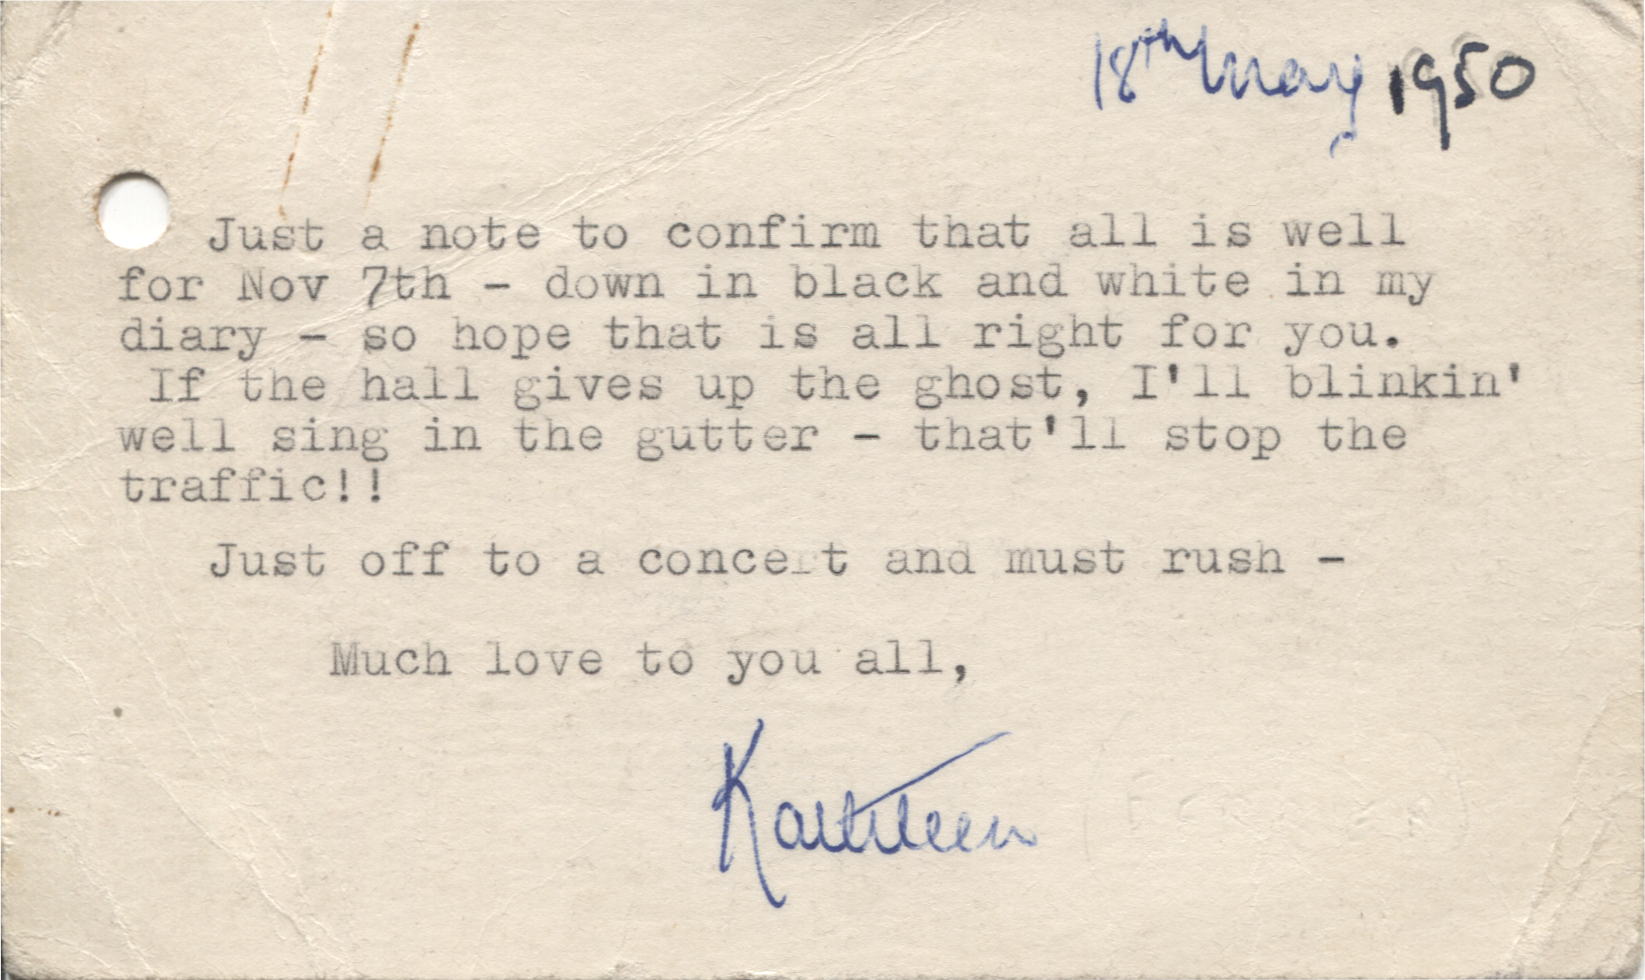 18th May 1950
Just a note to confirm that all is well
for Nov 7th - down in black and white in my
diary - so hope that is all right for you.
If the hall gives up the ghost, I'll blinkin'
well sing in the gutter - that'll stop the
traffic!!
Just off to a concert and must rush -
Much love to you all,
Kathleen